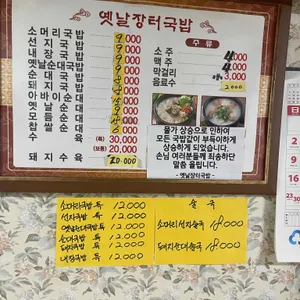 옛날장터국밥
소머리국밥 9,000
선지국밥
내장국밥
옛날순대국밥
순대국밥
돼지국밥
모듬순대
찹쌀순대
(특) 30,000
(보통) 20,000
돼지수육 20,000
주류
소주 4,000
맥주 4,000
막걸리 3,000
음료수 2000
물가 상승으로 인하여
모든 국밥값이 부득이하게
상승하게 되었습니다.
손님 여러분들께 죄송하단
말씀 올립니다.
-옛날장터국밥-
소머리국밥 특 12,000
선지국밥 특 12,000
옛날순대국밥 특 12,000
순대국밥 특 12,000
돼지국밥 특 12,000
내장국밥 특 12,000
술국
소머리선지술국 18,000
돼지순대술국 18,000